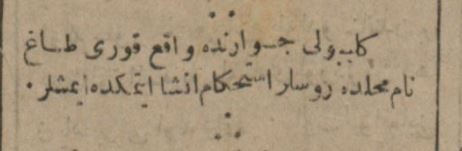 كليبولى جوارنده واقع قورى طاغ
نام محلده روسلر استحكام انشا ايتمكده ايمشلر .